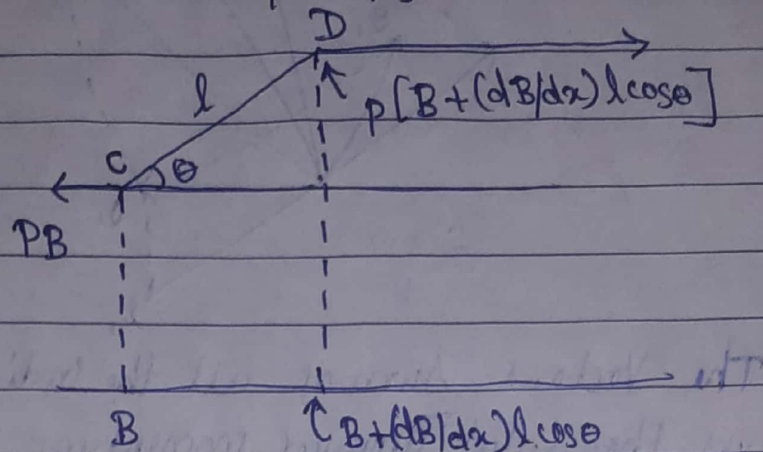 D
l
p[B+(dB/dx)lcosθ]
C
θ
PB
B
B+(dB/dx)l.cosθ